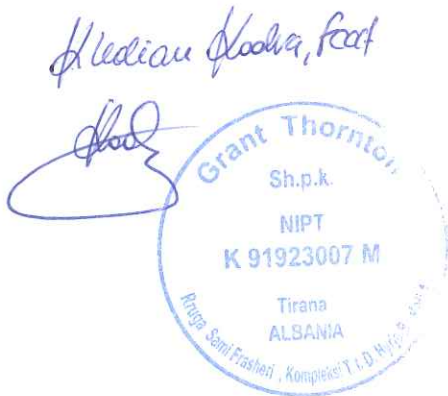 Kledian Kodra, fcca
Grant Thornton
Sh.p.k.
NIPT
K 91923007 M
Tirana
ALBANIA
Rruga Sami Frasheri , Kompleksi T.I.D,